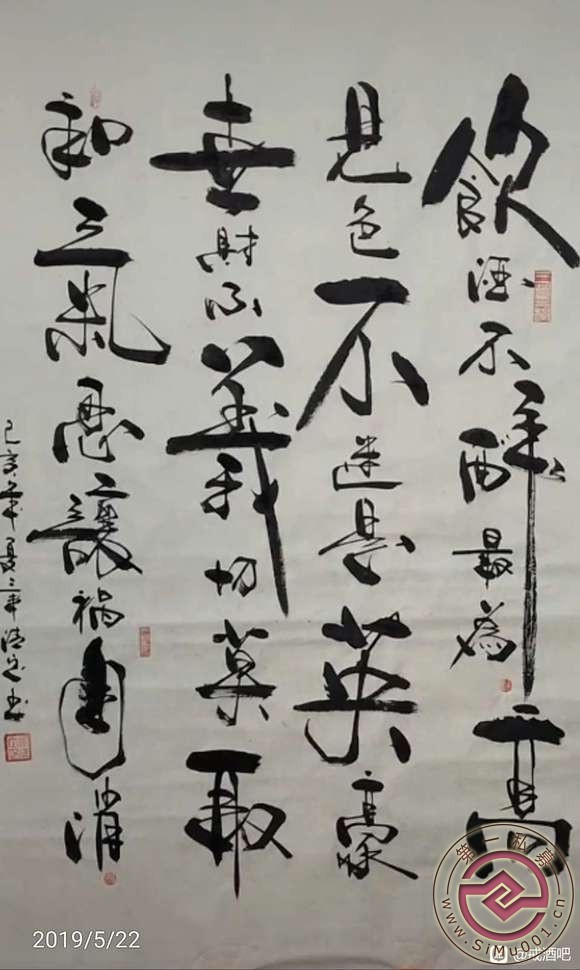 飲酒不醉最為高
見色不迷是英豪
世財不義切莫取
和氣忍讓禍自消
己亥年夏
2019/5/22
第一私募
www.SiMu001.cn
@戒酒吧